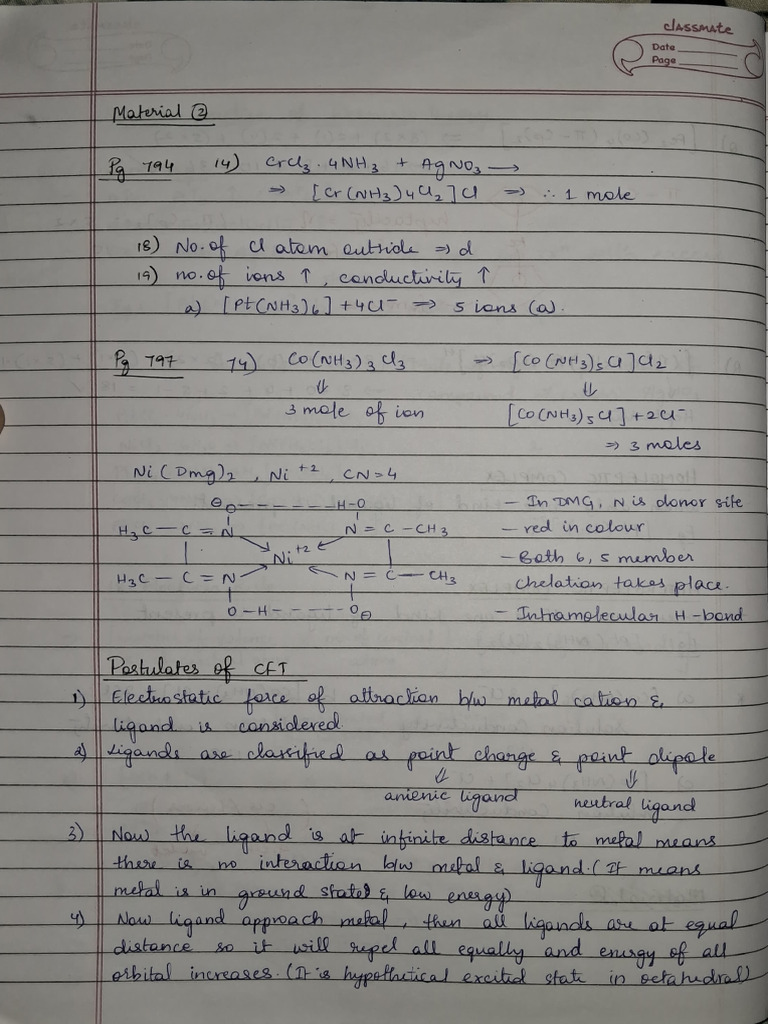 classmate
Date
Page
Material ②
Pg 794 14) CrCl₃·4NH₃ + AgNO₃ ⟶
⇒ [Cr(NH₃)₄Cl₂]Cl ⇒ ∴ 1 mole
18) No. of Cl atom outside ⇒ d
19) no. of ions ↑, conductivity ↑
a) [Pt(NH₃)₆] + 4Cl⁻ ⇒ 5 ions (a).
Pg 797 74) Co(NH₃)₃Cl₃ ⇒ [Co(NH₃)₅Cl]Cl₂
⇓ ⇓
3 mole of ion [Co(NH₃)₅Cl] + 2Cl⁻
⇒ 3 moles
Ni(Dmg)₂, Ni⁺², CN=4
⊖O------H-O – In DMG, N is donor site
H₃C – C = N N = C – CH₃ – red in colour
Ni⁺² – Both 6, 5 member
H₃C – C = N N = C – CH₃ chelation takes place.
O-H-----O⊖ – Intramolecular H-bond
Postulates of CFT
1) Electrostatic force of attraction b/w metal cation &
ligand is considered
2) Ligands are classified as point charge & point dipole
⇓ ⇓
anienic ligand neutral ligand
3) Now the ligand is at infinite distance to metal means
there is no interaction b/w metal & ligand. (It means
metal is in ground state & low energy)
4) Now ligand approach metal, then all ligands are at equal
distance so it will repel all equally and energy of all
orbital increases. (It is hypothetical excited state in octahedral)